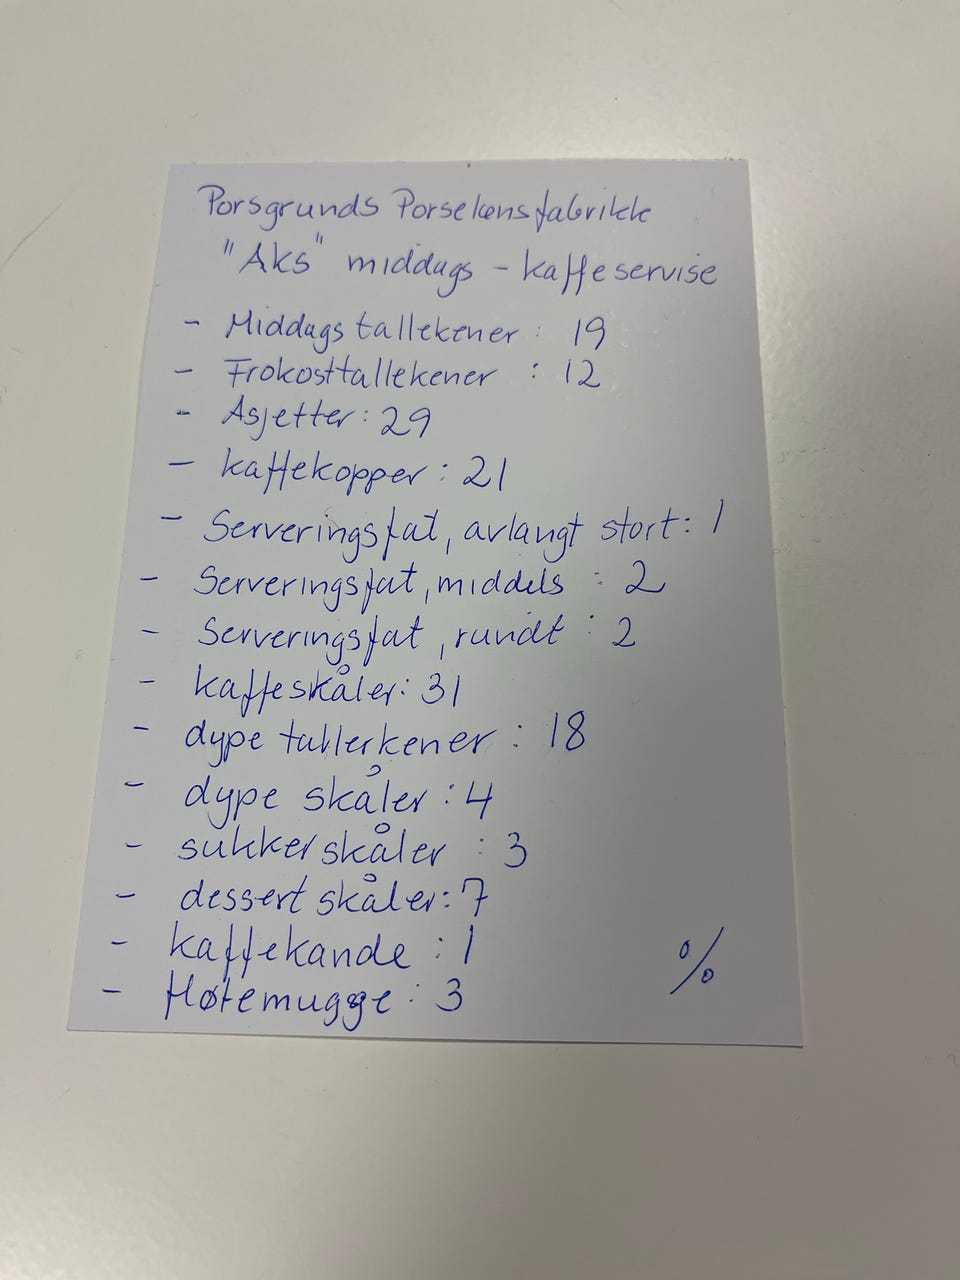 Porsgrunds Porselensfabrikk
"Aks" middags - kaffeservise
- Middagstallekener : 19
- Frokosttallekener : 12
- Asjetter : 29
- kaffekopper : 21
- Serveringsfat, avlangt stort : 1
- Serveringsfat, middels : 2
- Serveringsfat, rundt : 2
- kaffeskåler : 31
- dype tallerkener : 18
- dype skåler : 4
- sukkerskåler : 3
- dessertskåler : 7
- kaffekande : 1
- Fløtemugge : 3
%